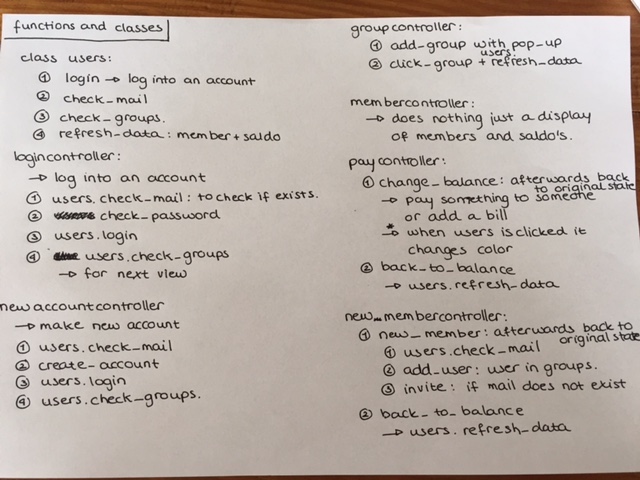 functions and classes
class users:
① login → log into an account
② check_mail
③ check_groups.
④ refresh_data : member + saldo
logincontroller:
→ log into an account
① users.check_mail : to check if exists.
② check_password
③ users.login
④ users.check_groups
→ for next view
newaccountcontroller
→ make new account
① users.check_mail
② create_account
③ users.login
④ users.check_groups.
groupcontroller:
① add_group with pop-up
users.
② click_group + refresh_data
membercontroller:
→ does nothing just a display
of members and saldo's.
paycontroller:
① change_balance: afterwards back
to original state
→ pay something to someone
or add a bill
* → when users is clicked it
changes color
② back_to_balance
→ users.refresh_data
new_membercontroller:
① new_member: afterwards back to
original state
① users.check_mail
② add_user: user in groups.
③ invite: if mail does not exist
② back_to_balance
→ users.refresh_data